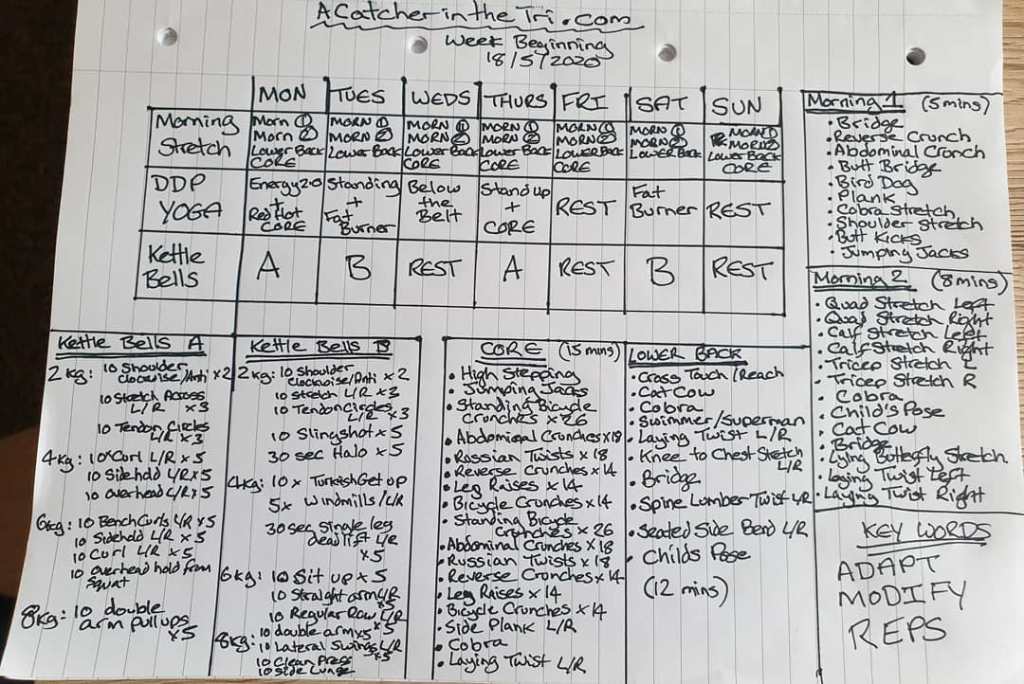 ACatcherintheTri.com
Week Beginning
18/5/2020
MON TUES WEDS THURS FRI SAT SUN
Morning Stretch
Morn ① Morn ② Lower Back CORE
MORN ① MORN ② Lower Back
MORN ① MORN ② Lower Back CORE
MORN ① MORN ② Lower Back CORE
MORN ① MORN ② Lower Back CORE
MORN ① MORN ② LOWER Back
MORN ① MORN ② Lower Back CORE
DDP YOGA
Energy 2.0 + Red Hot CORE
Standing + Fat Burner
Below the Belt
Stand up + CORE
REST
Fat Burner
REST
Kettle Bells
A B REST A REST B REST
Morning 1 (5mins)
• Bridge
• Reverse Crunch
• Abdominal Crunch
• Butt Bridge
• Bird Dog
• Plank
• Cobra Stretch
• Shoulder Stretch
• Butt Kicks
• Jumping Jacks
Morning 2 (8mins)
• Quad Stretch Left
• Quad Stretch Right
• Calf Stretch Left
• Calf Stretch Right
• Tricep Stretch L
• Tricep Stretch R
• Cobra
• Child's Pose
• Cat Cow
• Bridge
• Lying Butterfly Stretch
• Laying Twist Left
• Laying Twist Right
Kettle Bells A
2kg: 10 Shoulder
clockwise/Anti x2
10 Stretch Across
L/R x3
10 Tendon Circles
L/R x3
4kg: 10 Curl L/R x5
10 Sidehold L/R x5
10 overhead L/R x5
6kg: 10 Bench Curls L/R x5
10 Sidehold L/R x5
10 Curl L/R x5
10 overhead hold from
Squat
8kg: 10 double
arm pull ups
x5
Kettle Bells B
2kg: 10 Shoulder
clockwise/Anti x2
10 stretch L/R x3
10 Tendon Circles
L/R x3
10 Slingshot x5
30 sec Halo x5
4kg: 10x Turkish Get up
5x Windmills L/R
30 sec single leg
deadlift L/R
x5
6kg: 10 Sit up x5
10 Straight arm L/R
10 Regular Row L/R
8kg: 10 double arm x5
10 Lateral Swings x5
10 Clean Press
10 side Lunge
CORE (15mins)
• High Stepping
• Jumping Jacks
• Standing Bicycle
Crunches x26
• Abdominal Crunches x18
• Russian Twists x18
• Reverse Crunches x14
• Leg Raises x14
• Bicycle Crunches x14
• Standing Bicycle
Crunches x26
• Abdominal Crunches x18
• Russian Twists x18
• Reverse Crunches x14
• Leg Raises x14
• Bicycle Crunches x14
• Side Plank L/R
• Cobra
• Laying Twist L/R
LOWER BACK
• Cross Touch/Reach
• Cat Cow
• Cobra
• Swimmer/Superman
• Laying Twist L/R
• Knee to Chest Stretch
L/R
• Bridge
• Spine Lumber Twist L/R
• Seated Side Bend L/R
• Childs Pose
(12 mins)
KEY WORDS
ADAPT
MODIFY
REPS